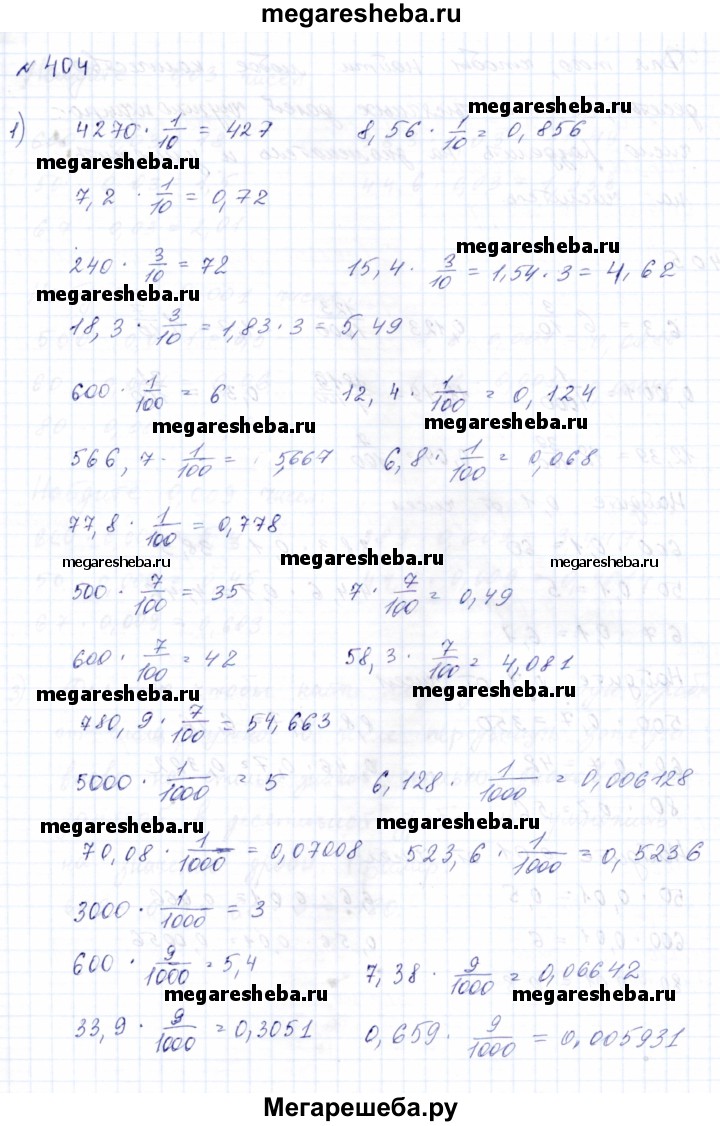 megaresheba.ru
№ 404
megaresheba.ru
1) 4270 · 1/10 = 427 8,56 · 1/10 = 0,856
megaresheba.ru
7,2 · 1/10 = 0,72
megaresheba.ru
240 · 3/10 = 72 15,4 · 3/10 = 1,54 · 3 = 4,62
megaresheba.ru
18,3 · 3/10 = 1,83 · 3 = 5,49
600 · 1/100 = 6 12,4 · 1/100 = 0,124
megaresheba.ru megaresheba.ru
566,7 · 1/100 = 5,667 6,8 · 1/100 = 0,068
77,8 · 1/100 = 0,778
megaresheba.ru megaresheba.ru megaresheba.ru
500 · 7/100 = 35 7 · 7/100 = 0,49
600 · 7/100 = 42 58,3 · 7/100 = 4,081
megaresheba.ru megaresheba.ru
780,9 · 7/100 = 54,663
5000 · 1/1000 = 5 6,128 · 1/1000 = 0,006128
megaresheba.ru megaresheba.ru
70,08 · 1/1000 = 0,07008 523,6 · 1/1000 = 0,5236
3000 · 1/1000 = 3
600 · 9/1000 = 5,4 7,38 · 9/1000 = 0,06642
megaresheba.ru megaresheba.ru
33,9 · 9/1000 = 0,3051 0,659 · 9/1000 = 0,005931
Мегарешеба.ру